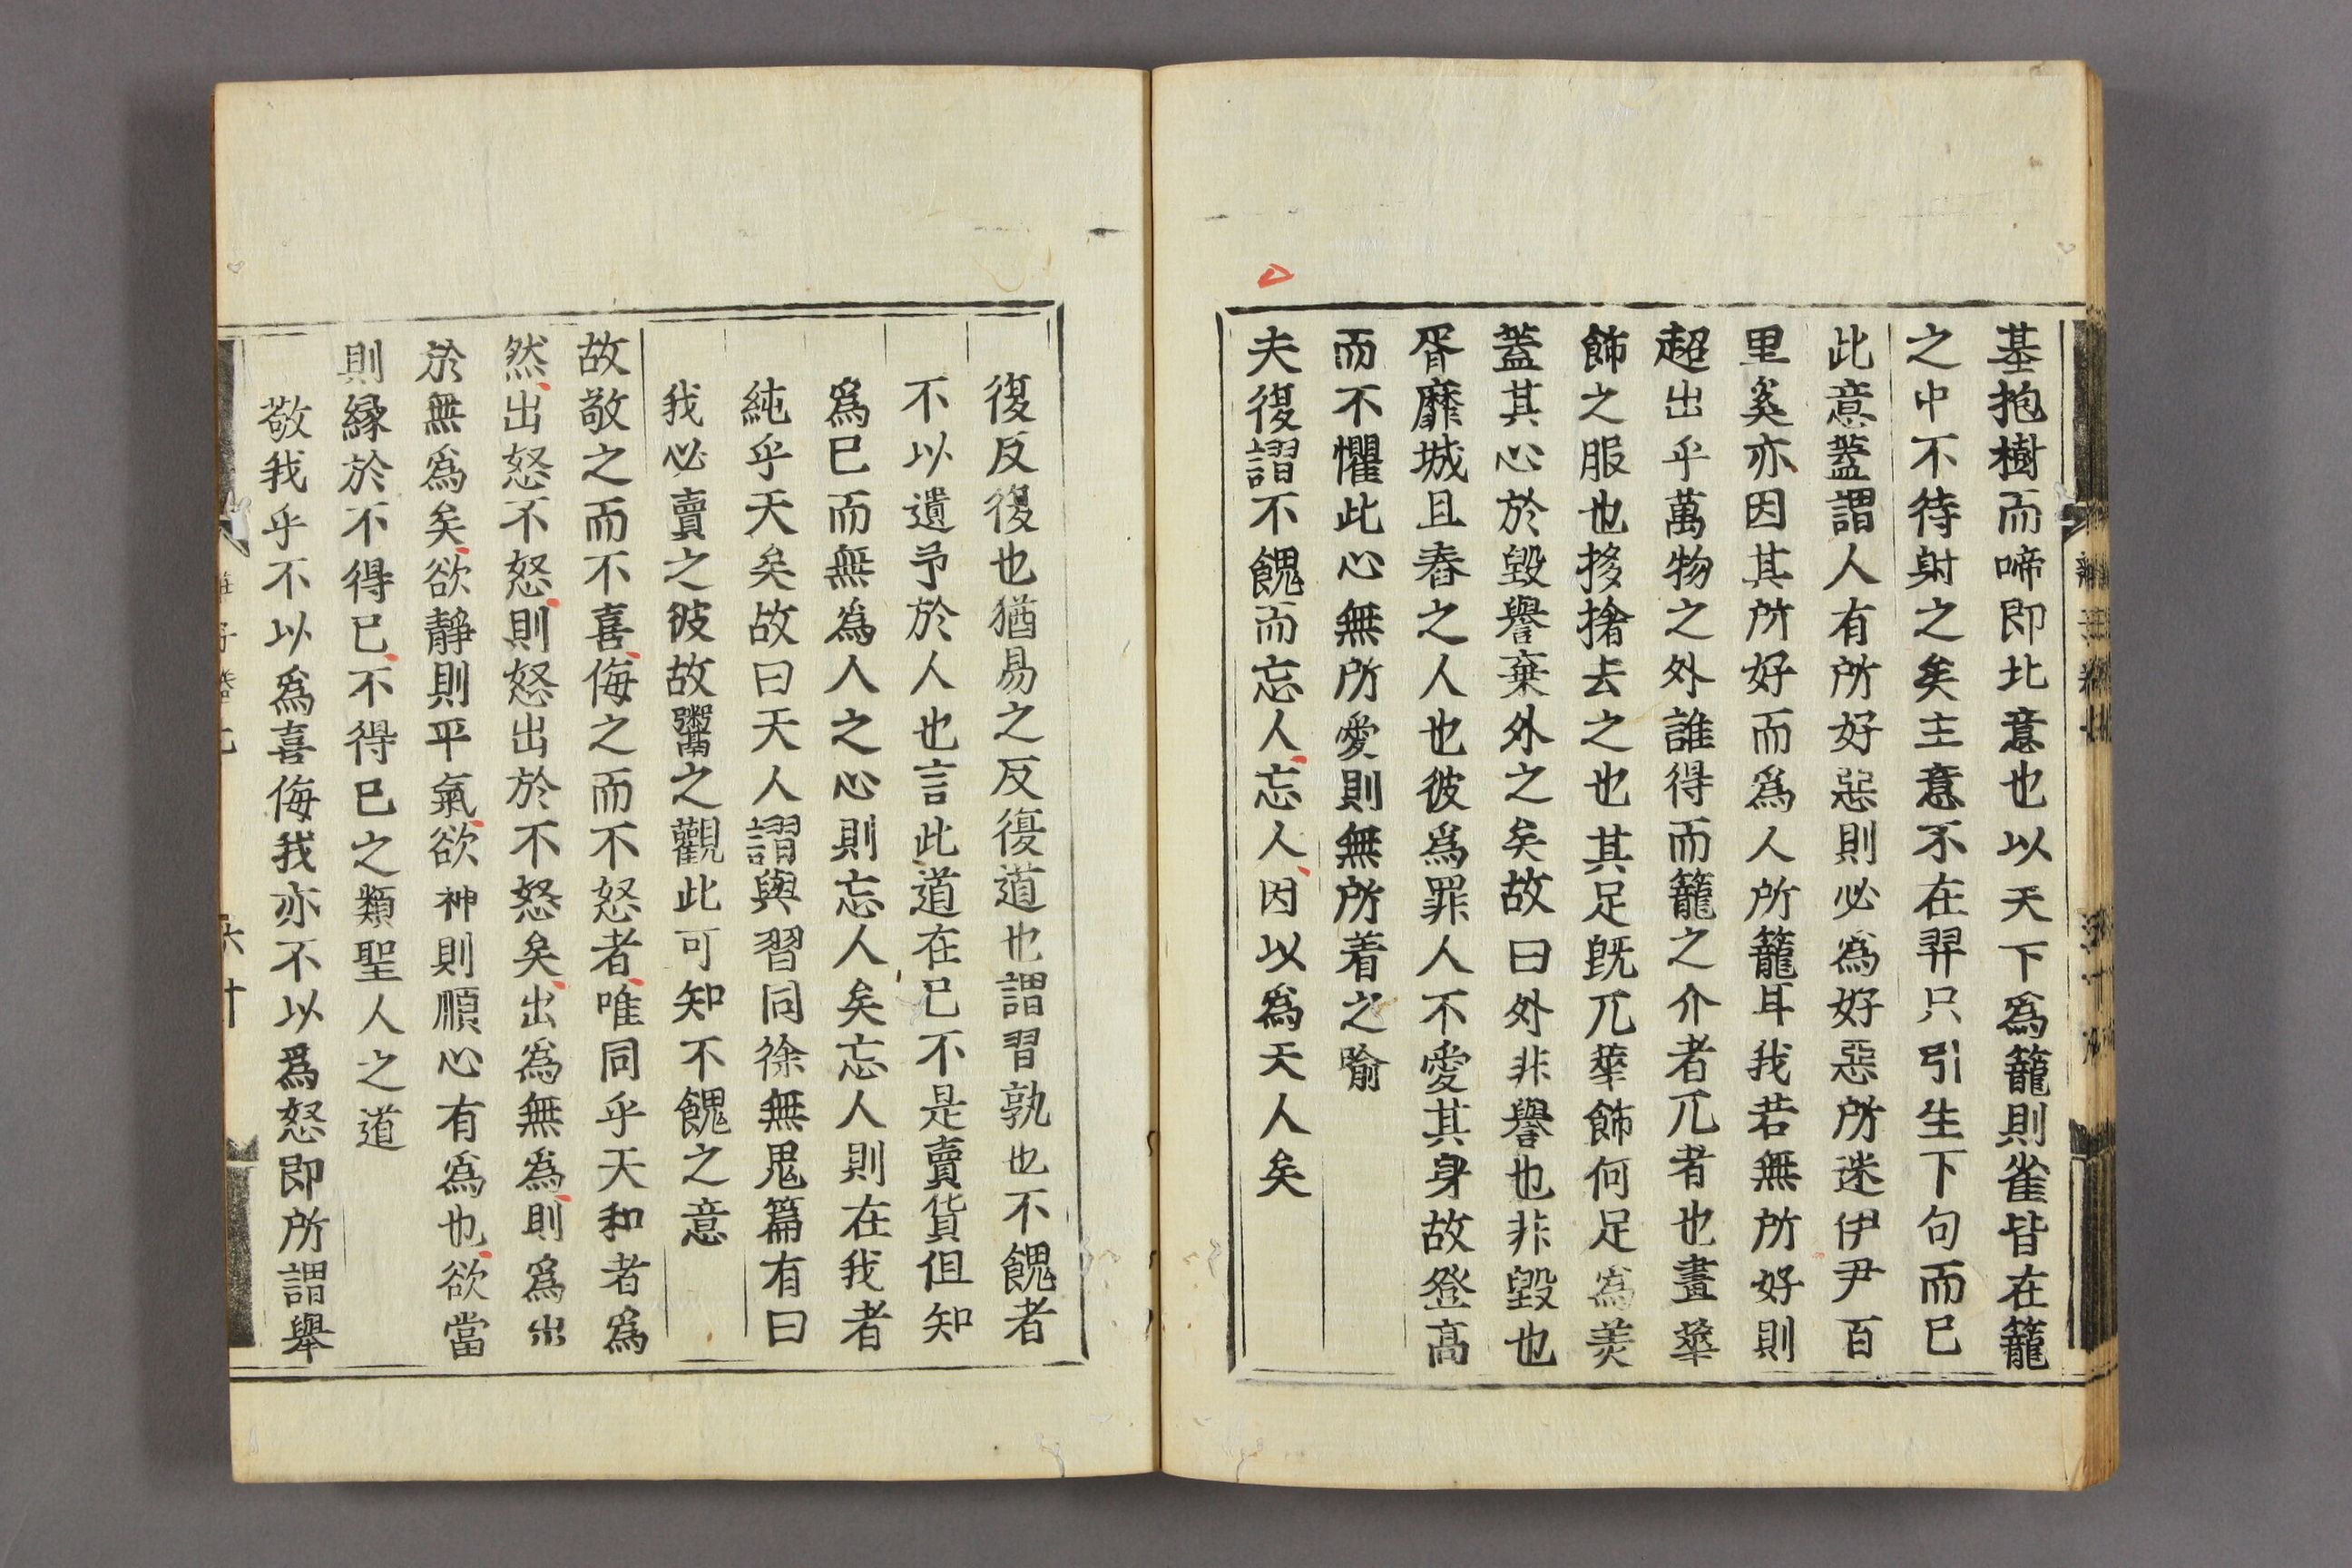 基抱樹而啼即此意也以天下爲籠則雀皆在籠
之中不待射之矣主意不在羿只引生下句而已
此意蓋謂人有所好惡則必爲好惡所迷伊尹百
里奚亦因其所好而爲人所籠耳我若無所好則
超出乎萬物之外誰得而籠之介者兀者也畫華
飾之服也拸捨去之也其足旣兀華飾何足爲美
蓋其心於毀譽棄外之矣故曰外非譽也非毀也
胥靡城且舂之人也彼爲罪人不愛其身故登高
而不懼此心無所愛則無所着之喻
夫復謵不餽而忘人忘人因以爲天人矣
復反復也猶易之反復道也謂習孰也不餽者
不以遺予於人也言此道在已不是賣貨但知
爲巳而無爲人之心則忘人矣忘人則在我者
純乎天矣故曰天人謵與習同徐無鬼篇有曰
我必賣之彼故鬻之觀此可知不餽之意
故敬之而不喜侮之而不怒者唯同乎天和者爲
然出怒不怒則怒出於不怒矣出爲無爲則爲出
於無爲矣欲靜則平氣欲神則順心有爲也欲當
則緣於不得已不得巳之類聖人之道
敬我乎不以爲喜侮我亦不以爲怒即所謂舉